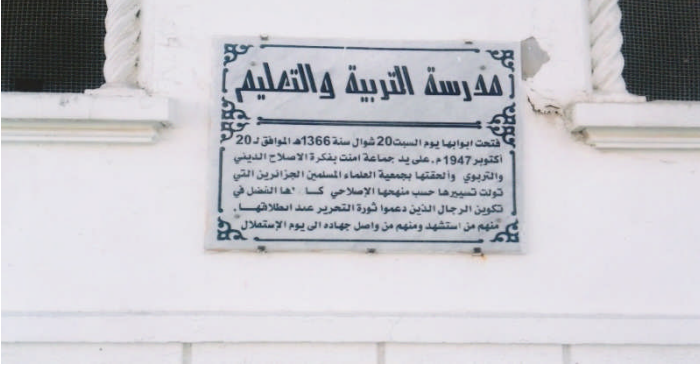 مدرسة التربية والتعليم
فتحت ابوابها يوم السبت 20 شوال سنة 1366هـ الموافق لـ 20
أكتوبر 1947 م. على يد جماعة امنت بفكرة الاصلاح الديني
والتربوي وألحقتها بجمعية العلماء المسلمين الجزائرين التي
تولت تسييرها حسب منهجها الإصلاحي الفضل في
تكوين الرجال الذين دعموا ثورة التحرير عند انطلاقهـا .
منهم من استشهد ومنهم من واصل جهاده الى يوم الإستعلال